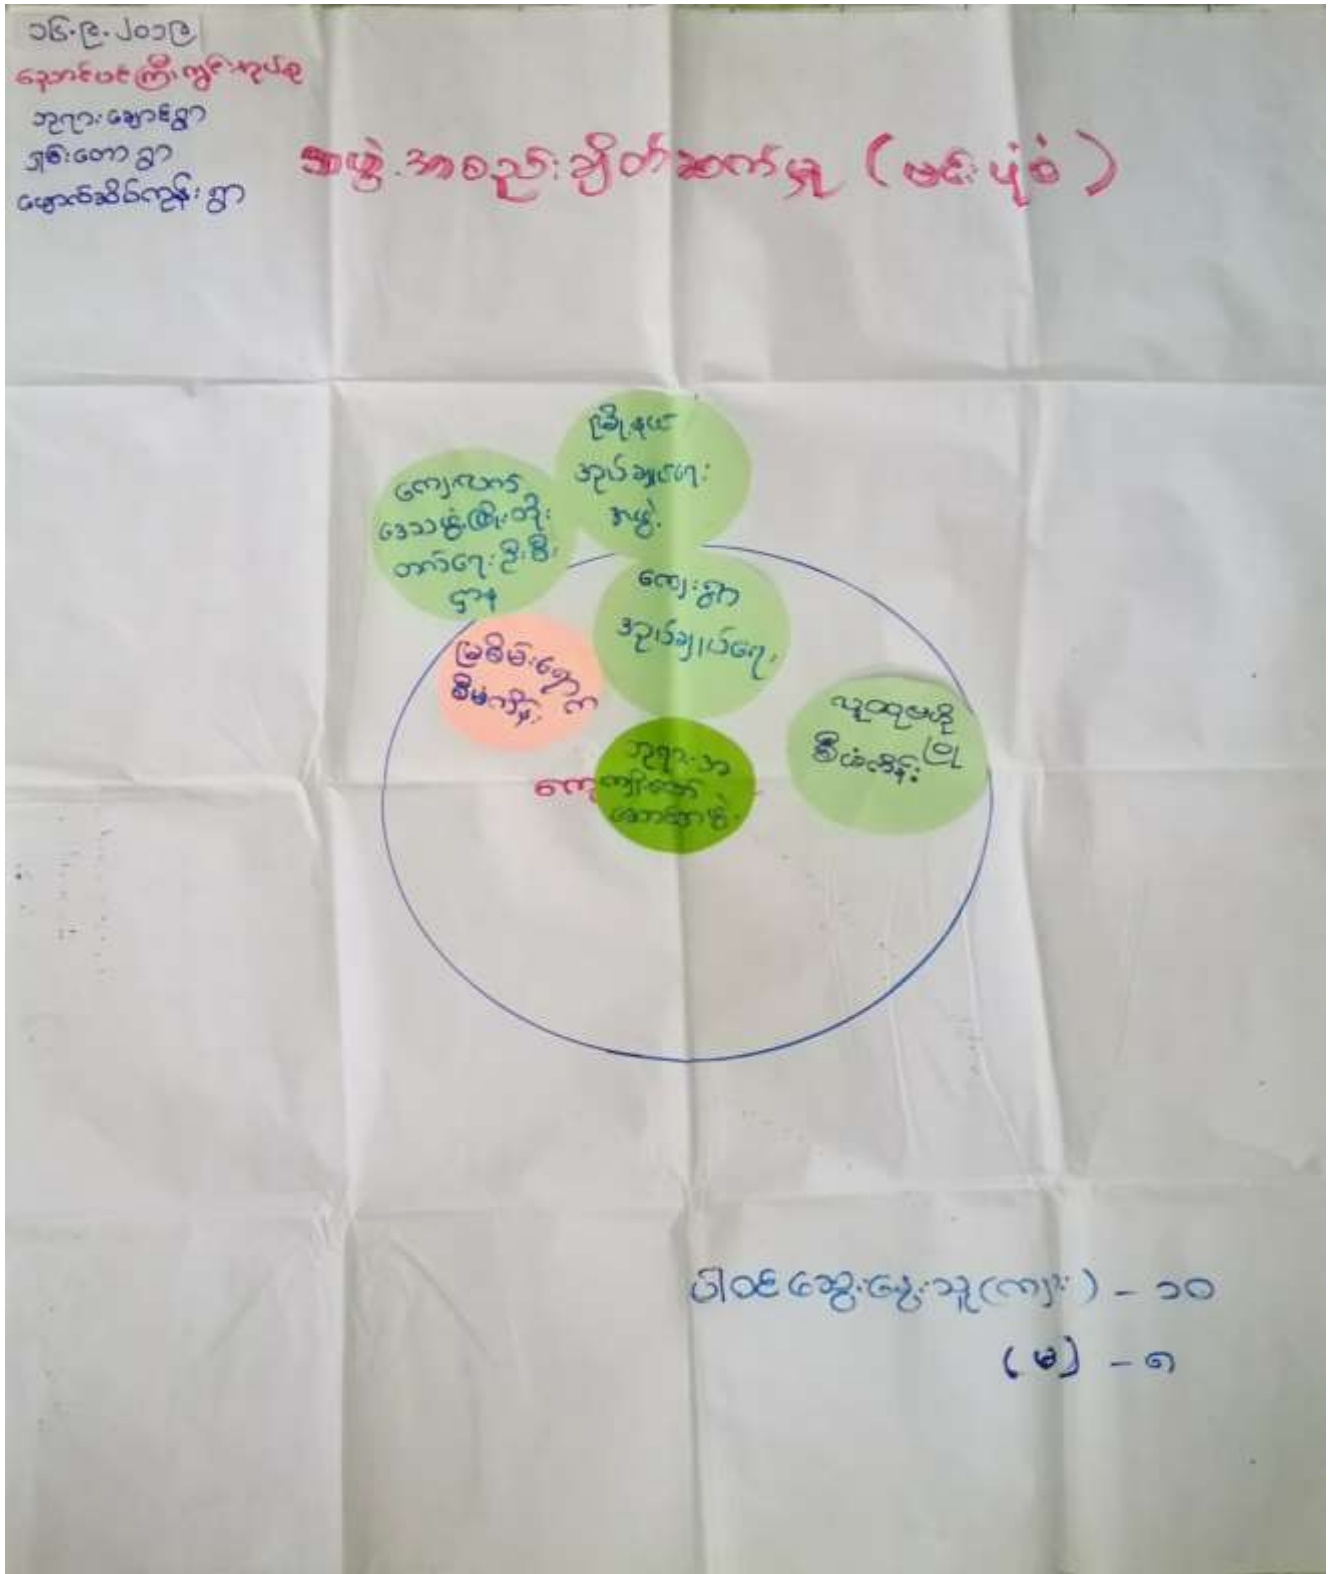 ၁၆.၉.၂၀၁၉
ညောင်ပင်ကြီးကွင်းအုပ်စု
ဘုရားချောင်ရွာ
ရှမ်းတောရွာ
မျောက်ဆိပ်ကုန်းရွာ
အဖွဲ့အစည်းချိတ်ဆက်မှု (ဗင်းပုံစံ)
မြို့နယ်
အုပ်ချုပ်ရေး
အဖွဲ့
ကျေးလက်
ဒေသဖွံ့ဖြိုးတိုး
တက်ရေးဦးစီး
ဌာန
ကျေးရွာ
အုပ်ချုပ်ရေး
မြစိမ်းရောင်
စီမံကိန်း
လူထုဗဟိုပြု
စီမံကိန်း
ဘုရားအ
ကျိုးတော်
ဆောင်အဖွဲ့
ပါဝင်ဆွေးနွေးသူ(ကျား) - ၁၀
(မ) - ၈